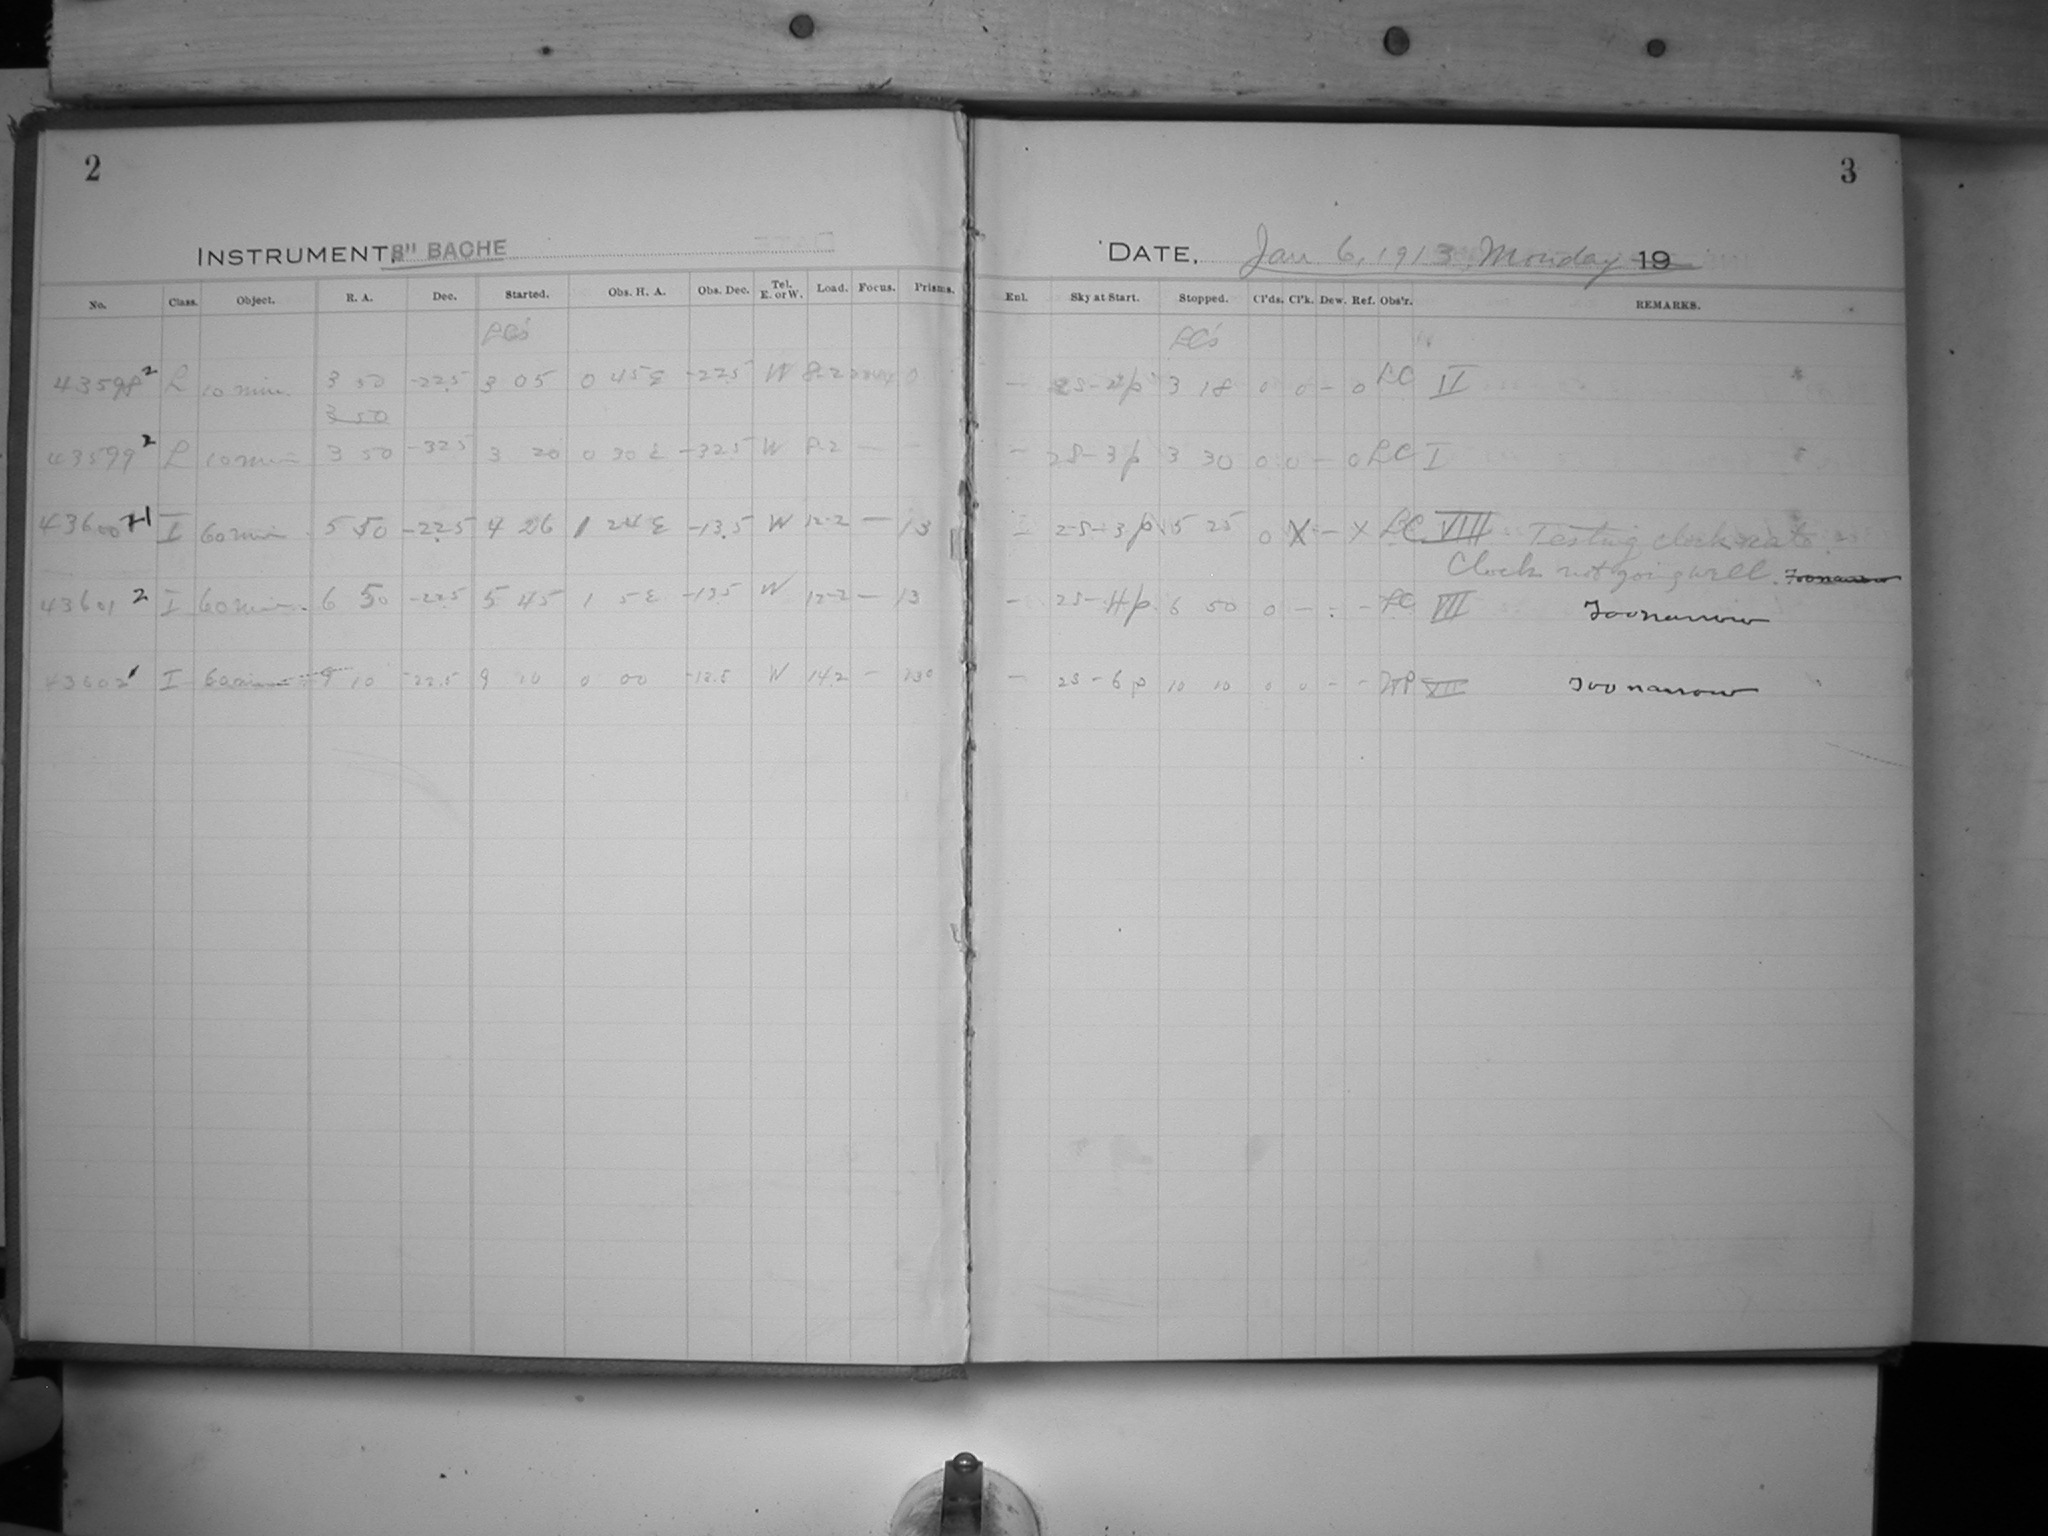 2
INSTRUMENT, 8" BACHE
No. Class. Object. R. A. Dec. Started. Obs. H. A. Obs. Dec. Tel. E. or W. Load. Focus. Prisms.
43598 2 L 10 min. 3 50 -22.5 3 05 0 45 E -22.5 W 8-2 0
3 50
43599 2 L 10 min 3 50 -32.5 3 20 0 30 E -32.5 W 8-2 — —
43600 I 60 min 5 50 -22.5 4 26 1 24 E -13.5 W 12-2 — 13
43601 2 I 60 min. 6 50 -22.5 5 45 1 5 E -13.5 W 12-2 — 13
43602 1 I 60 min 9 10 -22.5 9 10 0 00 -12.5 W 14.2 —
3
DATE, Jan 6, 1913 Monday 19
Enl. Sky at Start. Stopped. Cl'ds. Cl'k. Dew. Ref. Obs'r. REMARKS.
LC's
— 3 18 0 0 — 0 LC II
— 2S-3p 3 30 0 0 — 0 LC I
— 2S-3p 5 25 0 X — X LC VIII Testing clock rate.
Clock not going well. Too narrow
— 2S-4p 6 50 0 — — — LC VII Too narrow
— 2S-6p 10 10 0 0 — — Too narrow